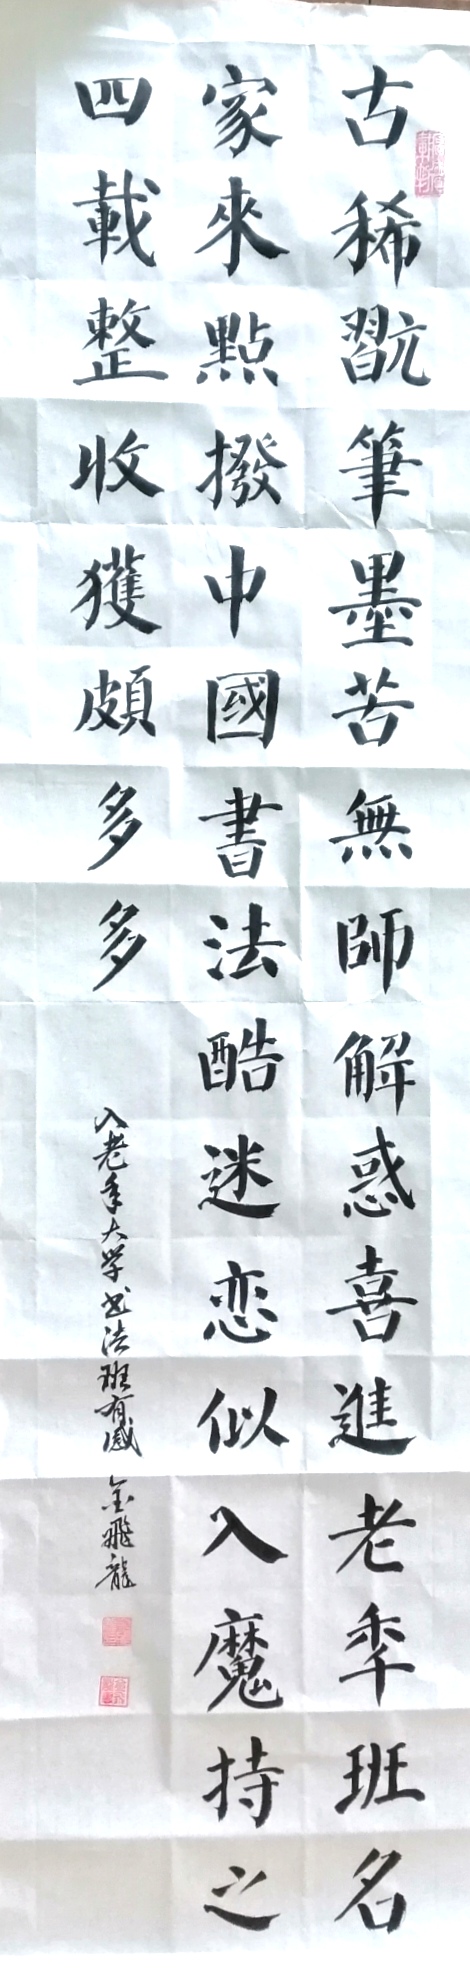 古稀翫筆墨苦無師解惑喜進老秊班名
家來點撥中國書法酷迷恋似入魔持之
四載整收獲頗多多
入老年大学书法班有感 金飛龍